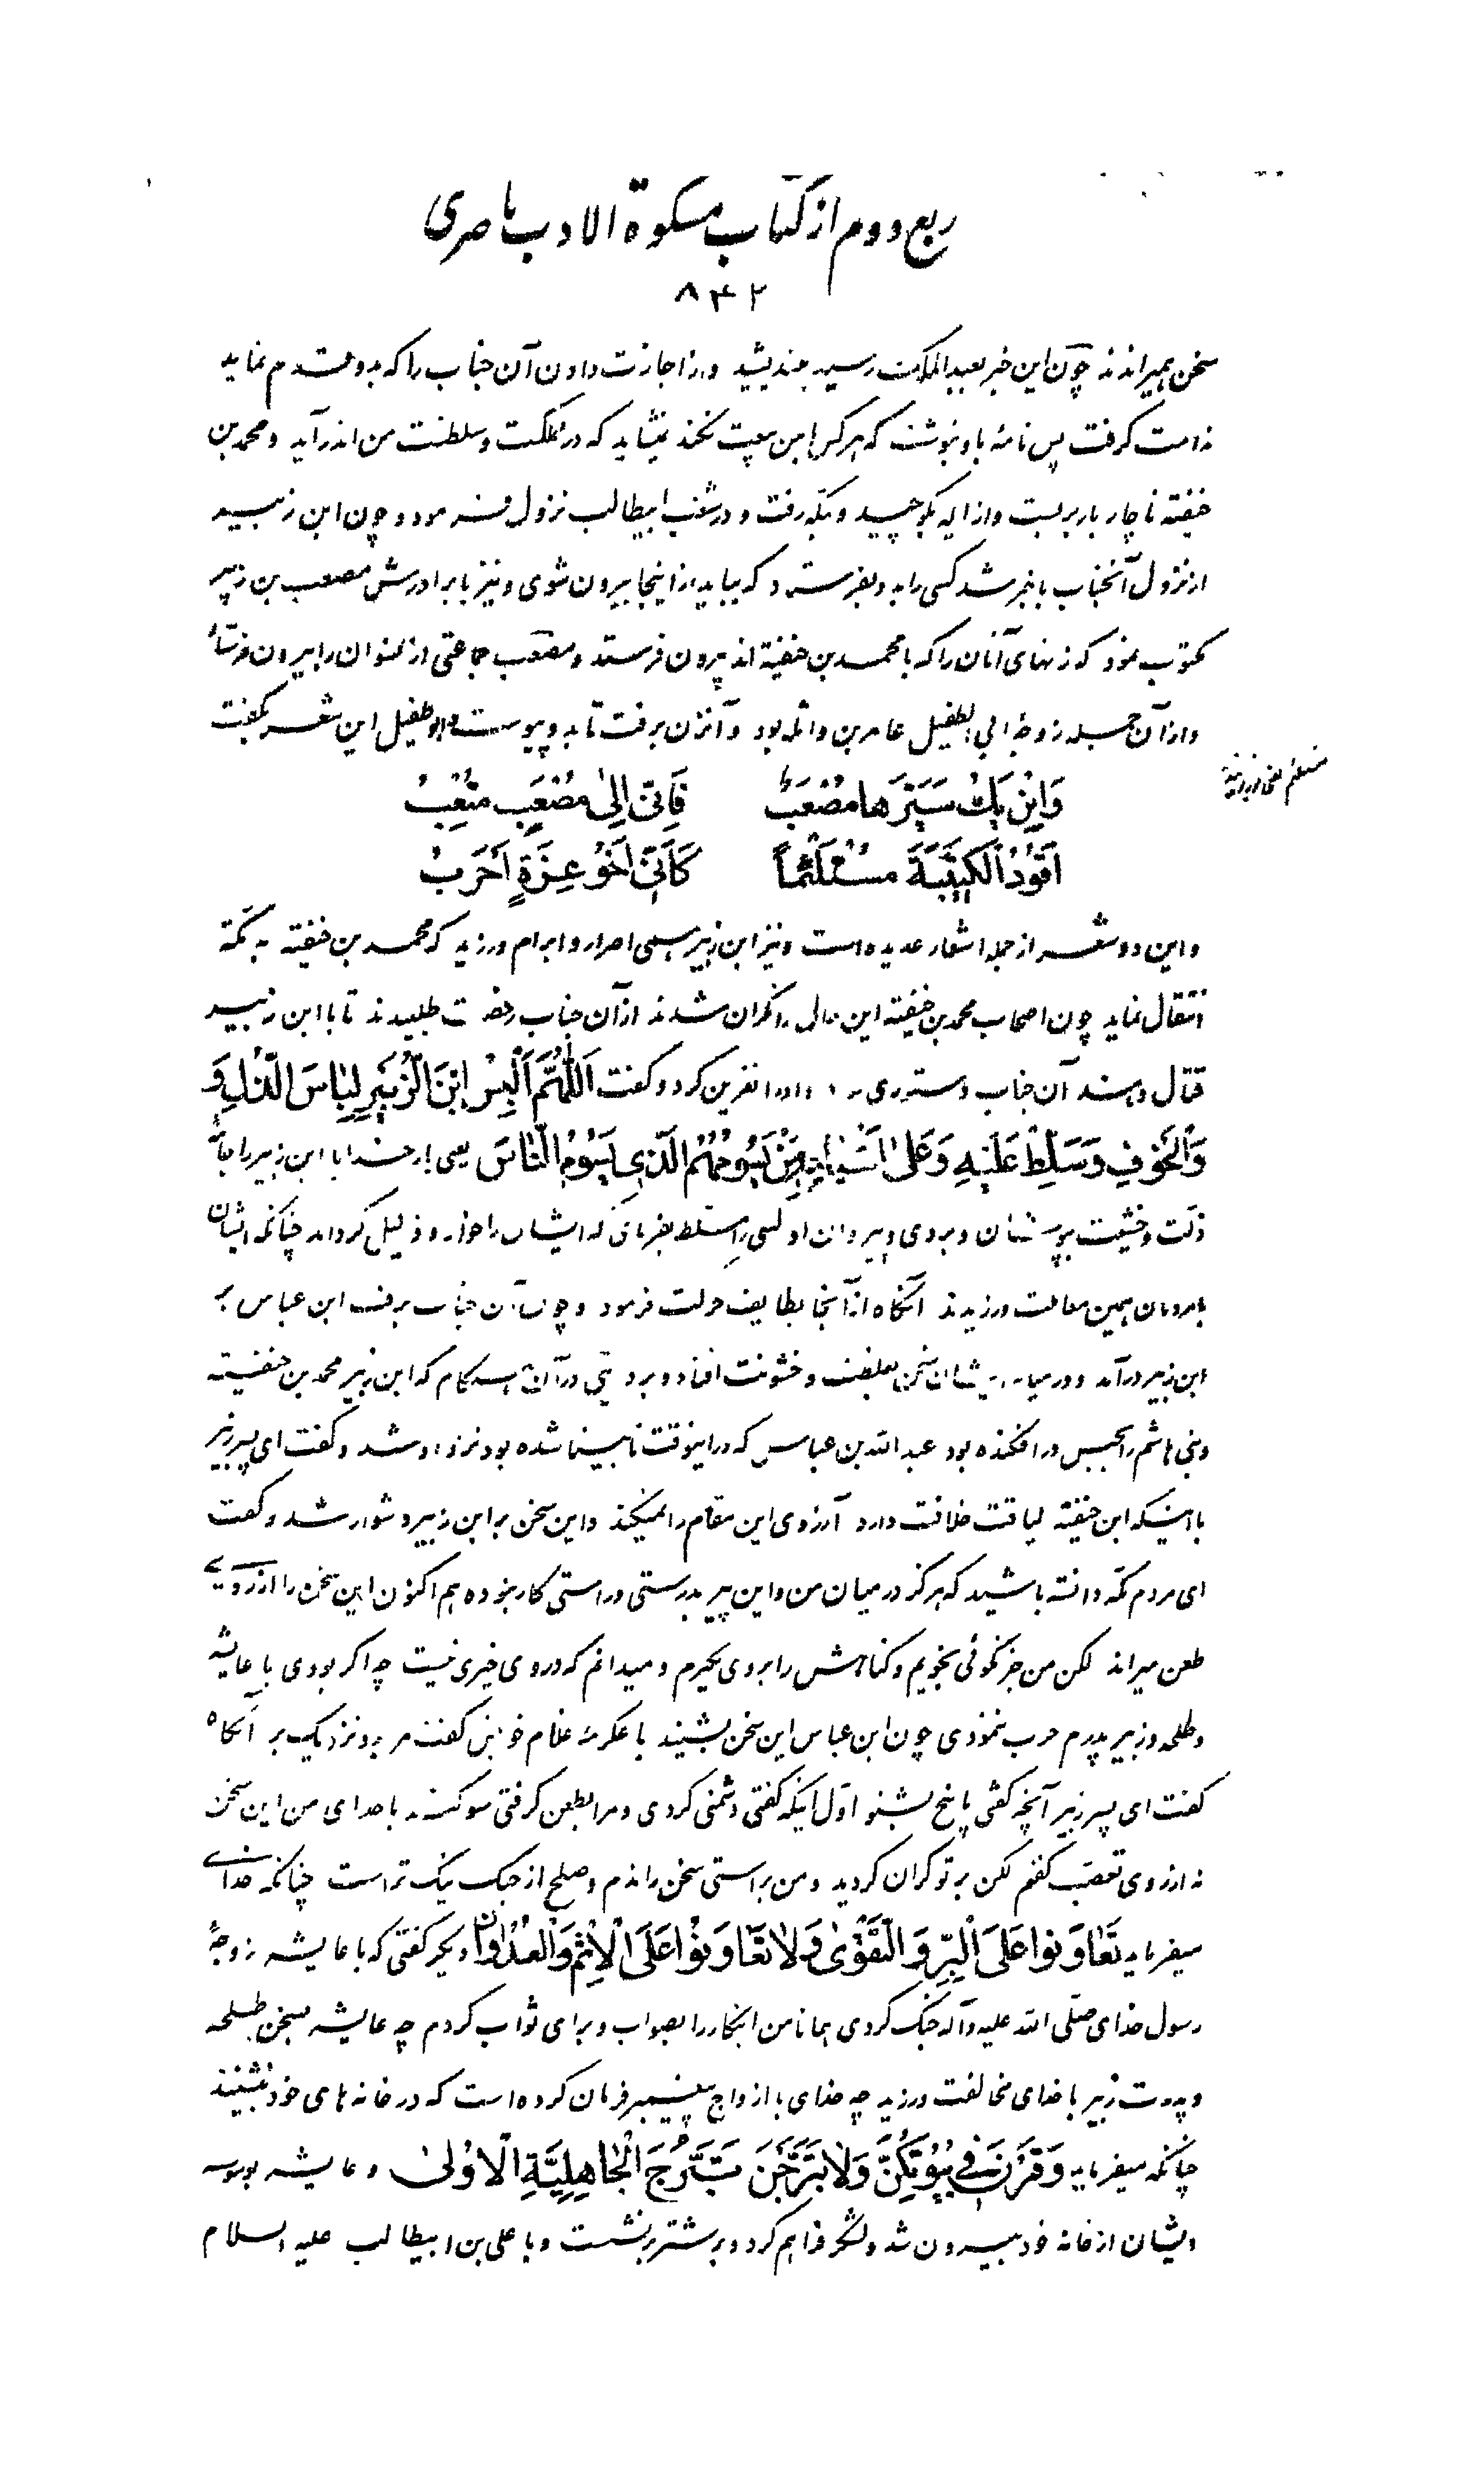 ربع دوم از کتاب مشکوة الادب ناصری
۸۴۲
سخن همیراندند چون این خبر بعبدالملک رسید بیندیشید و از اجازت دادن آن جناب را که بدو قدم نماید
ندامت گرفت پس نامهٔ باو نوشت که هرکس با من بیعت نکند نشاید که در مملکت و سلطنت من اندر آید و محمد بن
حنفیه ناچار بار بربست و از ایله بکوچید و بمکه رفت و در شعب ابیطالب نزول فرمود و چون ابن زبیر
از نزول آنجناب باخبر شد کسی را بدو بفرستاد که بباید از اینجا بیرون شوی و نیز با برادرش مصعب بن زبیر
مکتوب نمود که زنهای آنان را که با محمد بن حنفیه اند بیرون فرستد و مصعب جماعتی از نسوان را بیرون فرستاد
و از آن جمله زوجهٔ ابی الطفیل عامر بن واثله بود و آنزن برفت تا بدو پیوست و ابوطفیل این شعر بگفت
وَاِنْ یَكُ سَیَّرَها مُصْعَبٌ فَاِنّی اِلیٰ مُصْعَبٍ مُتْعِبُ
اَقُودُ الْکَتیبَةَ مُسْتَلْئِماً کَاَنّی اَخُو عِزَّةٍ اَحْرَبُ
و این دو شعر از جمله اشعار عدیده است و نیز ابن زبیر همی اصرار و ابرام ورزید که محمد بن حنفیه به مکه
انتقال نماید چون اصحاب محمد بن حنفیه این حال را نگران شدند از آن جناب رخصت طلبیدند تا با ابن زبیر
قتال دهند آن جناب دستوری نداد و او را نفرین کرد و گفت اَللّٰهُمَّ اَلْبِسْ اِبْنَ الزُّبَیْرِ لِبٰاسَ الذُّلِ وَ
وَالْخَوْفِ وَسَلِّطْ عَلَیْهِ وَعَلیٰ اَشْیاعِهِ مَنْ یَسُومُهُمُ الَّذی یَسُومُ النّٰاسَ یعنی بار خدایا ابن زبیر را جامهٔ
ذلت و خشیت بپوشان و بر وی و پیروان او کسی را مسلط بفرمای که ایشان را خوار و ذلیل گرداند چنانکه ایشان
با مردمان همین معاملت ورزیدند آنگاه از آنجا بطایف حرکت فرمود و چون آن جناب برفت ابن عباس بر
ابن زبیر درآمد و در میان ایشان سخن بغلظت و خشونت افتاد و بروایتی در آن هنگام که ابن زبیر محمد بن حنفیه
و بنی هاشم را بحبس در افکنده بود عبدالله بن عباس که در اینوقت نابینا شده بود نزد او شد و گفت ای پسر زبیر
با اینکه ابن حنفیه لیاقت خلافت دارد آرزوی این مقام را نمیکند و این سخن بر ابن زبیر دشوار شد و گفت
ای مردم مکه دانسته باشید که هرگز در میان من و این پیر بدرستی و راستی کار نبوده هم اکنون این سخن را از روی
طعن میراند لکن من جز نکوئی نجویم و گناهش را بر وی نگیرم و میدانم که در وی خیری نیست چه اگر بودی با عایشه
و طلحه و زبیر پدرم حرب ننمودی چون ابن عباس این سخن بشنید با عکرمه غلام خویش گفت مرا بدو نزدیک بر آنگاه
گفت ای پسر زبیر آنچه گفتی پاسخ بشنو اول اینکه گفتی دشمنی کردی و مرا بطعن گرفتی سوگند با خدای من این سخن
نه از روی تعصب گفتم لکن بر تو گران گردید و من براستی سخن راندم و صلح از جنگ نیک تر است چنانکه خدای
میفرماید تَعٰاوَنوا عَلَی الْبِرِّ وَ التَّقْوٰی وَلٰا تَعٰاوَنُوا عَلَی الْاِثْمِ وَالْعُدْوانِ دیگر گفتی که با عایشه زوجهٔ
رسول خدای صلی الله علیه وآله جنگ کردی همانا من اینکار را بصواب و برای ثواب کردم چه عایشه بسخن طلحه
و پدرت زبیر با خدای مخالفت ورزید چه خدای با ازواج پیغمبر فرمان کرده است که در خانه های خود بنشینند
چنانکه میفرماید وَقَرْنَ فی بُیُوتِکُنَّ وَلٰا تَبَرَّجْنَ تَبَرُّجَ الْجٰاهِلِیَّةِ الْاُولیٰ و عایشه بوسوسه
ایشان از خانه خود بیرون شد و لشکر فراهم کرد و بر شتر برنشست و با علی بن ابیطالب علیه السلام